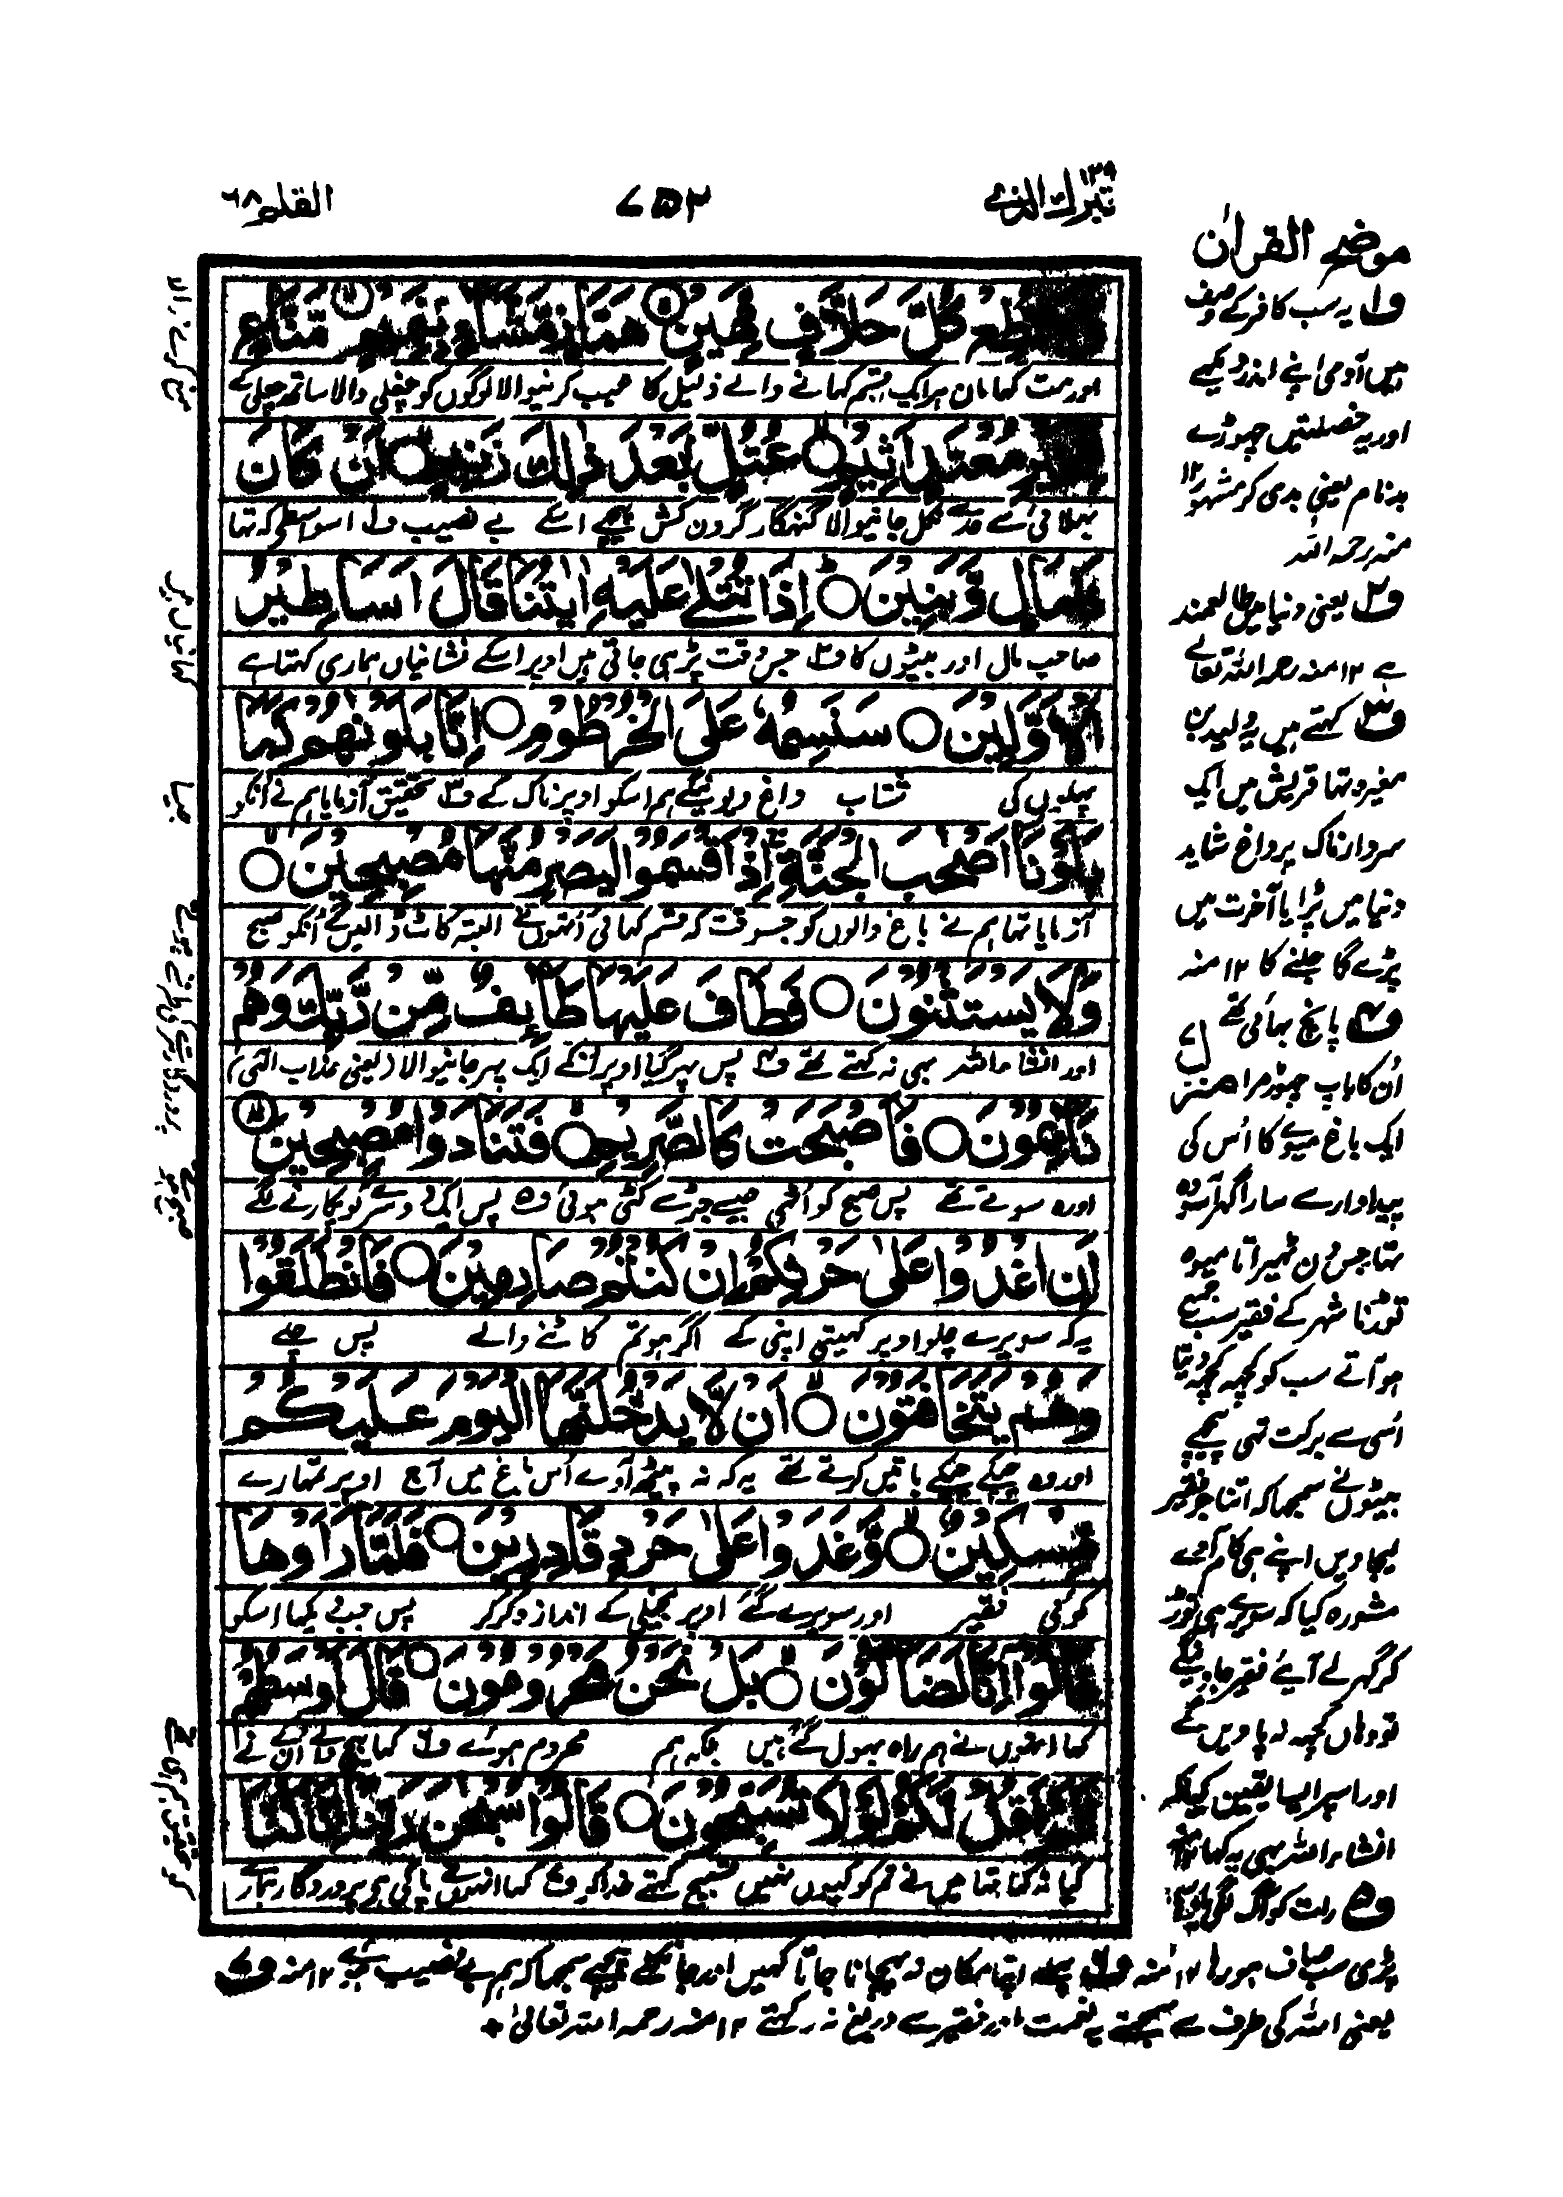 تبرك الذى ٢٩
٧٥٣
القلم ٦٨
موضح القرآن
تطع كل حلاف مهين ○ هماز مشاء بنميم ○ مناع
اور مت کہا مان ہر ایک قسم کہانے والے ذلیل کا عیب کرنیوالا لوگوں کو چغلی والا ساتھ چلی کے
للخير معتد اثيم ○ عتل بعد ذلك زنيم ○ ان كان
بہلائی سے حد سے نکل جانیوالا گنہگار گردن کش پیچھے اسکے بے نصیب ف۱ اسواسطے کہ تہا
ذا مال وبنين ○ اذا تتلى عليه ايتنا قال اساطير
صاحب مال اور بیٹوں کا ف۲ جس وقت پڑہی جاتی ہیں اوپر اسکے نشانیاں ہماری کہتا ہے
الاولين ○ سنسمه على الخرطوم ○ انا بلونهم كما
پہلوں کی شتاب داغ دیوینگے ہم اسکو اوپر ناک کے ف۳ تحقیق آزمایا ہم نے انکو
بلونا اصحب الجنة اذ اقسموا ليصرمنها مصبحين ○
آزمایا تہا ہم نے باغ والوں کو جسوقت کہ قسم کہائی اُنہوں نے البتہ کاٹ ڈالینگے اُنکو صبح
ولا يستثنون ○ فطاف عليها طائف من ربك وهم
اور انشاء اللہ بہی نہ کہتے تہے ف۴ پس پہر گیا اوپر انکے ایک پہر جانیوالا (یعنی عذاب الٰہی)
نائمون ○ فاصبحت كالصريم ○ فتنادوا مصبحين ○
اور وہ سوتے تہے پس صبح کو اُٹھی جیسے جڑ سے کٹی ہوئی ف۵ پس ایک نے دوسرے کو پکارنے لگے
ان اغدوا على حرثكم ان كنتم صارمين ○ فانطلقوا
یہ کہ سویرے چلو اوپر کہیتی اپنی کے اگر ہو تم کاٹنے والے پس چلے
وهم يتخافتون ○ ان لا يدخلنها اليوم عليكم
اور وہ چپکے چپکے باتیں کرتے تہے یہ کہ نہ پیٹھ آوے اُس باغ میں آج اوپر تمہارے
مسكين ○ وغدوا على حرد قادرين ○ فلما راوها
کوئی فقیر اور سویرے گئے اوپر بخیلی کے اندازہ کرکر پس جب دیکہا اسکو
قالوا انا لضالون ○ بل نحن محرومون ○ قال اوسطهم
کہا انہوں نے ہم راہ بہول گئے ہیں بلکہ ہم محروم ہوئے ف۶ کہا بیچ کے اُن نے
الم اقل لكم لولا تسبحون ○ قالوا سبحن ربنا انا كنا
کیا نہ کہتا تہا میں نے تم کو کیوں نہیں تسبیح کہتے خدا کو ف۷ کہا انہوں نے پاکی ہے پروردگار ہمارے
ف۱ یہ سب کافر کے وصف
ہیں آدمی اپنے اندر دیکہے
اور یہ خصلتیں چہوڑے
بدنام یعنی بدی کر مشہور ۱۲
منہ رحمہ اللہ
ف۲ یعنی دنیا میں طالعمند
ہے ۱۲ منہ رحمہ اللہ تعالے
ف۳ کہتے ہیں یہ ولید بن
مغیرہ تہا قریش میں ایک
سردار ناک پر داغ شاید
دنیا میں پڑا یا آخرت میں
پڑے گا جلنے کا ۱۲ منہ
ف۴ پانچ بہائی تہے
اُن کا باپ چہوڑ مرا
ایک باغ میوے کا اُس کی
پیداوار سے سارا گہر آسودہ
تہا جس دن ٹہیرا تا میوہ
توڑنا شہر کے فقیر سب جمع
ہو آتے سب کو کچہہ کچہہ دیتا
اُسی سے برکت تہی پیچہے
بیٹوں نے سمجہا کہ اتنا جو فقیر
لیجاویں اپنے ہی کام آوے
مشورہ کیا کہ سویرے ہی توڑ
کر گہر لے آئیے فقیر جاوینگے
تو وہاں کچہہ نہ پاویں گے
اور اسپر ایسا یقین کیا کہ
انشاء اللہ بہی نہ کہا ۱۲ منہ
ف۵ رات کو آگ لگی
پڑی سب صاف ہو رہا ۱۲ منہ ف۶ پہلے اپنا مکان نہ پہچانا جانا کہیں اور جا نکلے پیچہے سمجہا کہ ہم بے نصیب ہوئے ۱۲ منہ ف۷
یعنی اللہ کی طرف سے سمجہتے یہ نعمت اور فقیر سے دریغ نہ رکہتے ۱۲ منہ رحمہ اللہ تعالیٰ